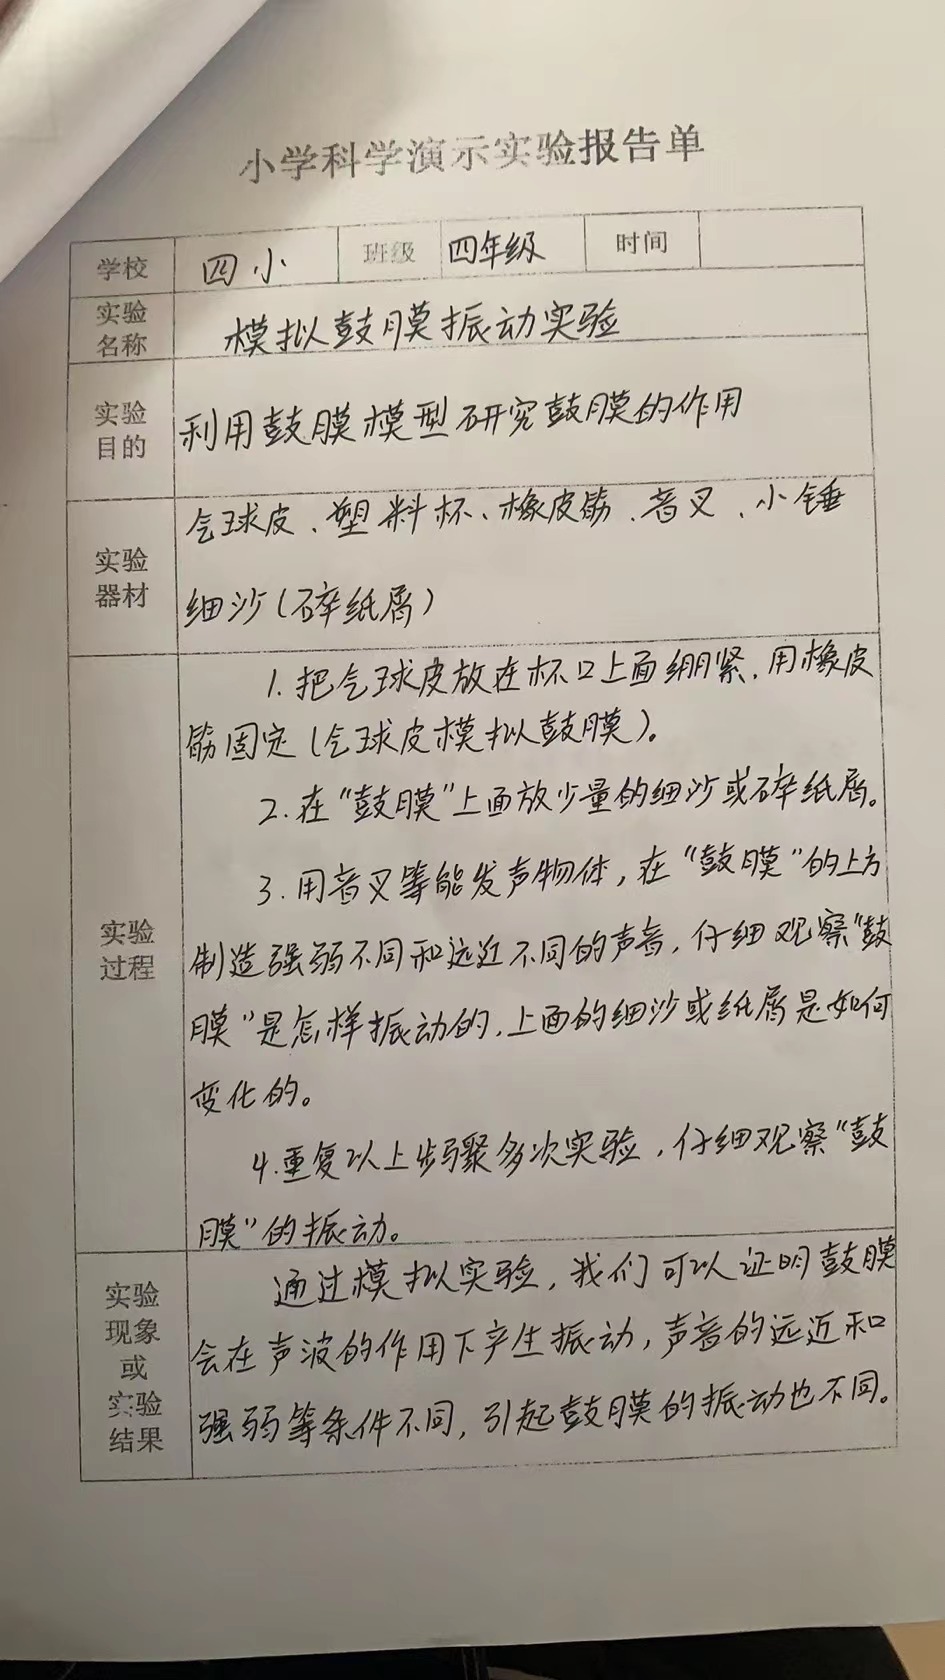 小学科学演示实验报告单
学校 四小 班级 四年级 时间
实验名称 模拟鼓膜振动实验
实验目的 利用鼓膜模型研究鼓膜的作用
实验器材 气球皮、塑料杯、橡皮筋、音叉、小锤
细沙(碎纸屑)
实验过程
1.把气球皮放在杯口上面绷紧,用橡皮
筋固定(气球皮模拟鼓膜)。
2.在“鼓膜”上面放少量的细沙或碎纸屑。
3.用音叉等能发声物体,在“鼓膜”的上方
制造强弱不同和远近不同的声音,仔细观察“鼓
膜”是怎样振动的,上面的细沙或纸屑是如何
变化的。
4.重复以上步骤多次实验,仔细观察“鼓
膜”的振动。
实验现象或实验结果
通过模拟实验,我们可以证明鼓膜
会在声波的作用下产生振动,声音的远近和
强弱等条件不同,引起鼓膜的振动也不同。